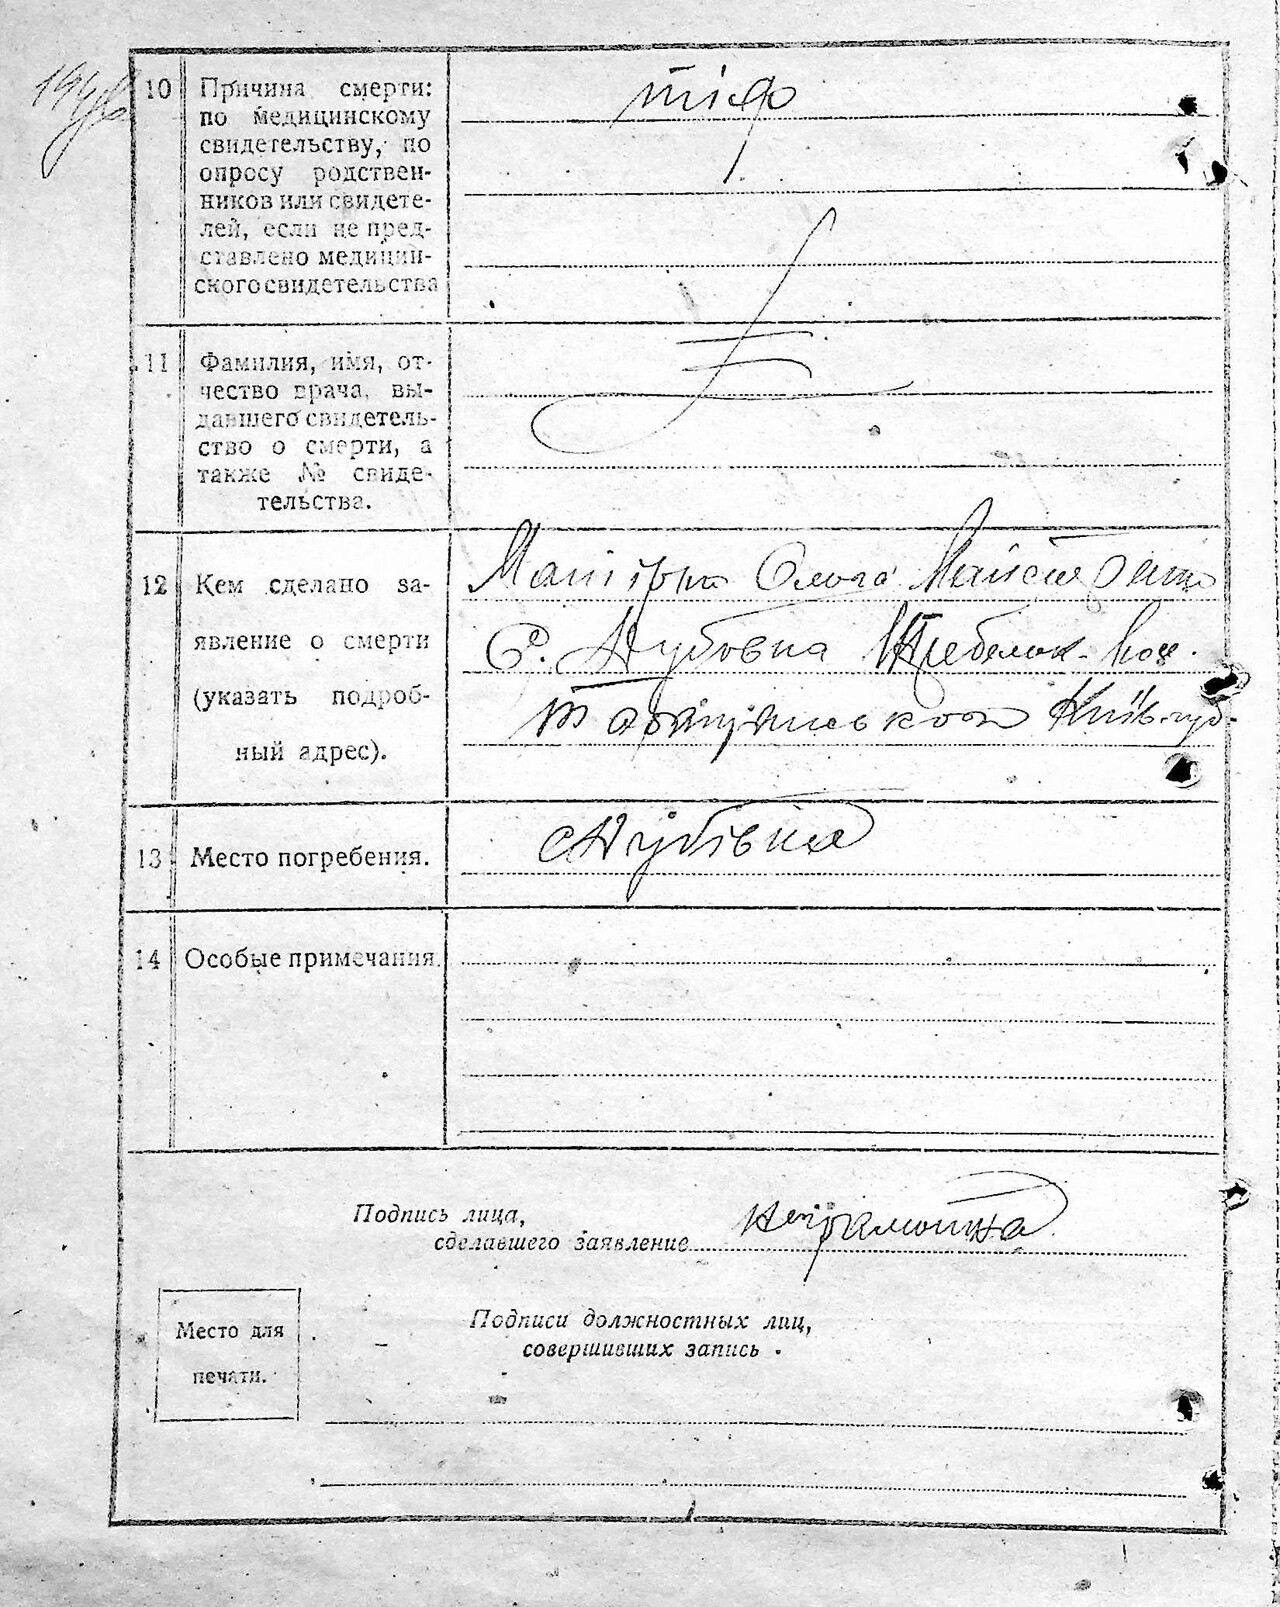 10 Причина смерти:
по медицинскому
свидетельству, по
опросу родствен-
ников или свидете-
лей, если не пред-
ставлено медицин-
ского свидетельства
тіф
11 Фамилия, имя, от-
чество врача, вы-
давшего свидетель-
ство о смерти, а
также № свиде-
тельства.
12 Кем сделано за-
явление о смерти
(указать подроб-
ный адрес).
Ольга
С. Нубовка
Київ. губ.
13 Место погребения.
14 Особые примечания.
Подпись лица,
сделавшего заявление
неграмотна
Место для
печати.
Подписи должностных лиц,
совершивших запись.